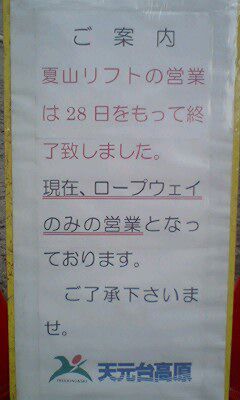 ご案内
夏山リフトの営業
は28日をもって終
了致しました。
現在、ロープウェイ
のみの営業となっ
ております。
ご了承下さいま
せ。
天元台高原